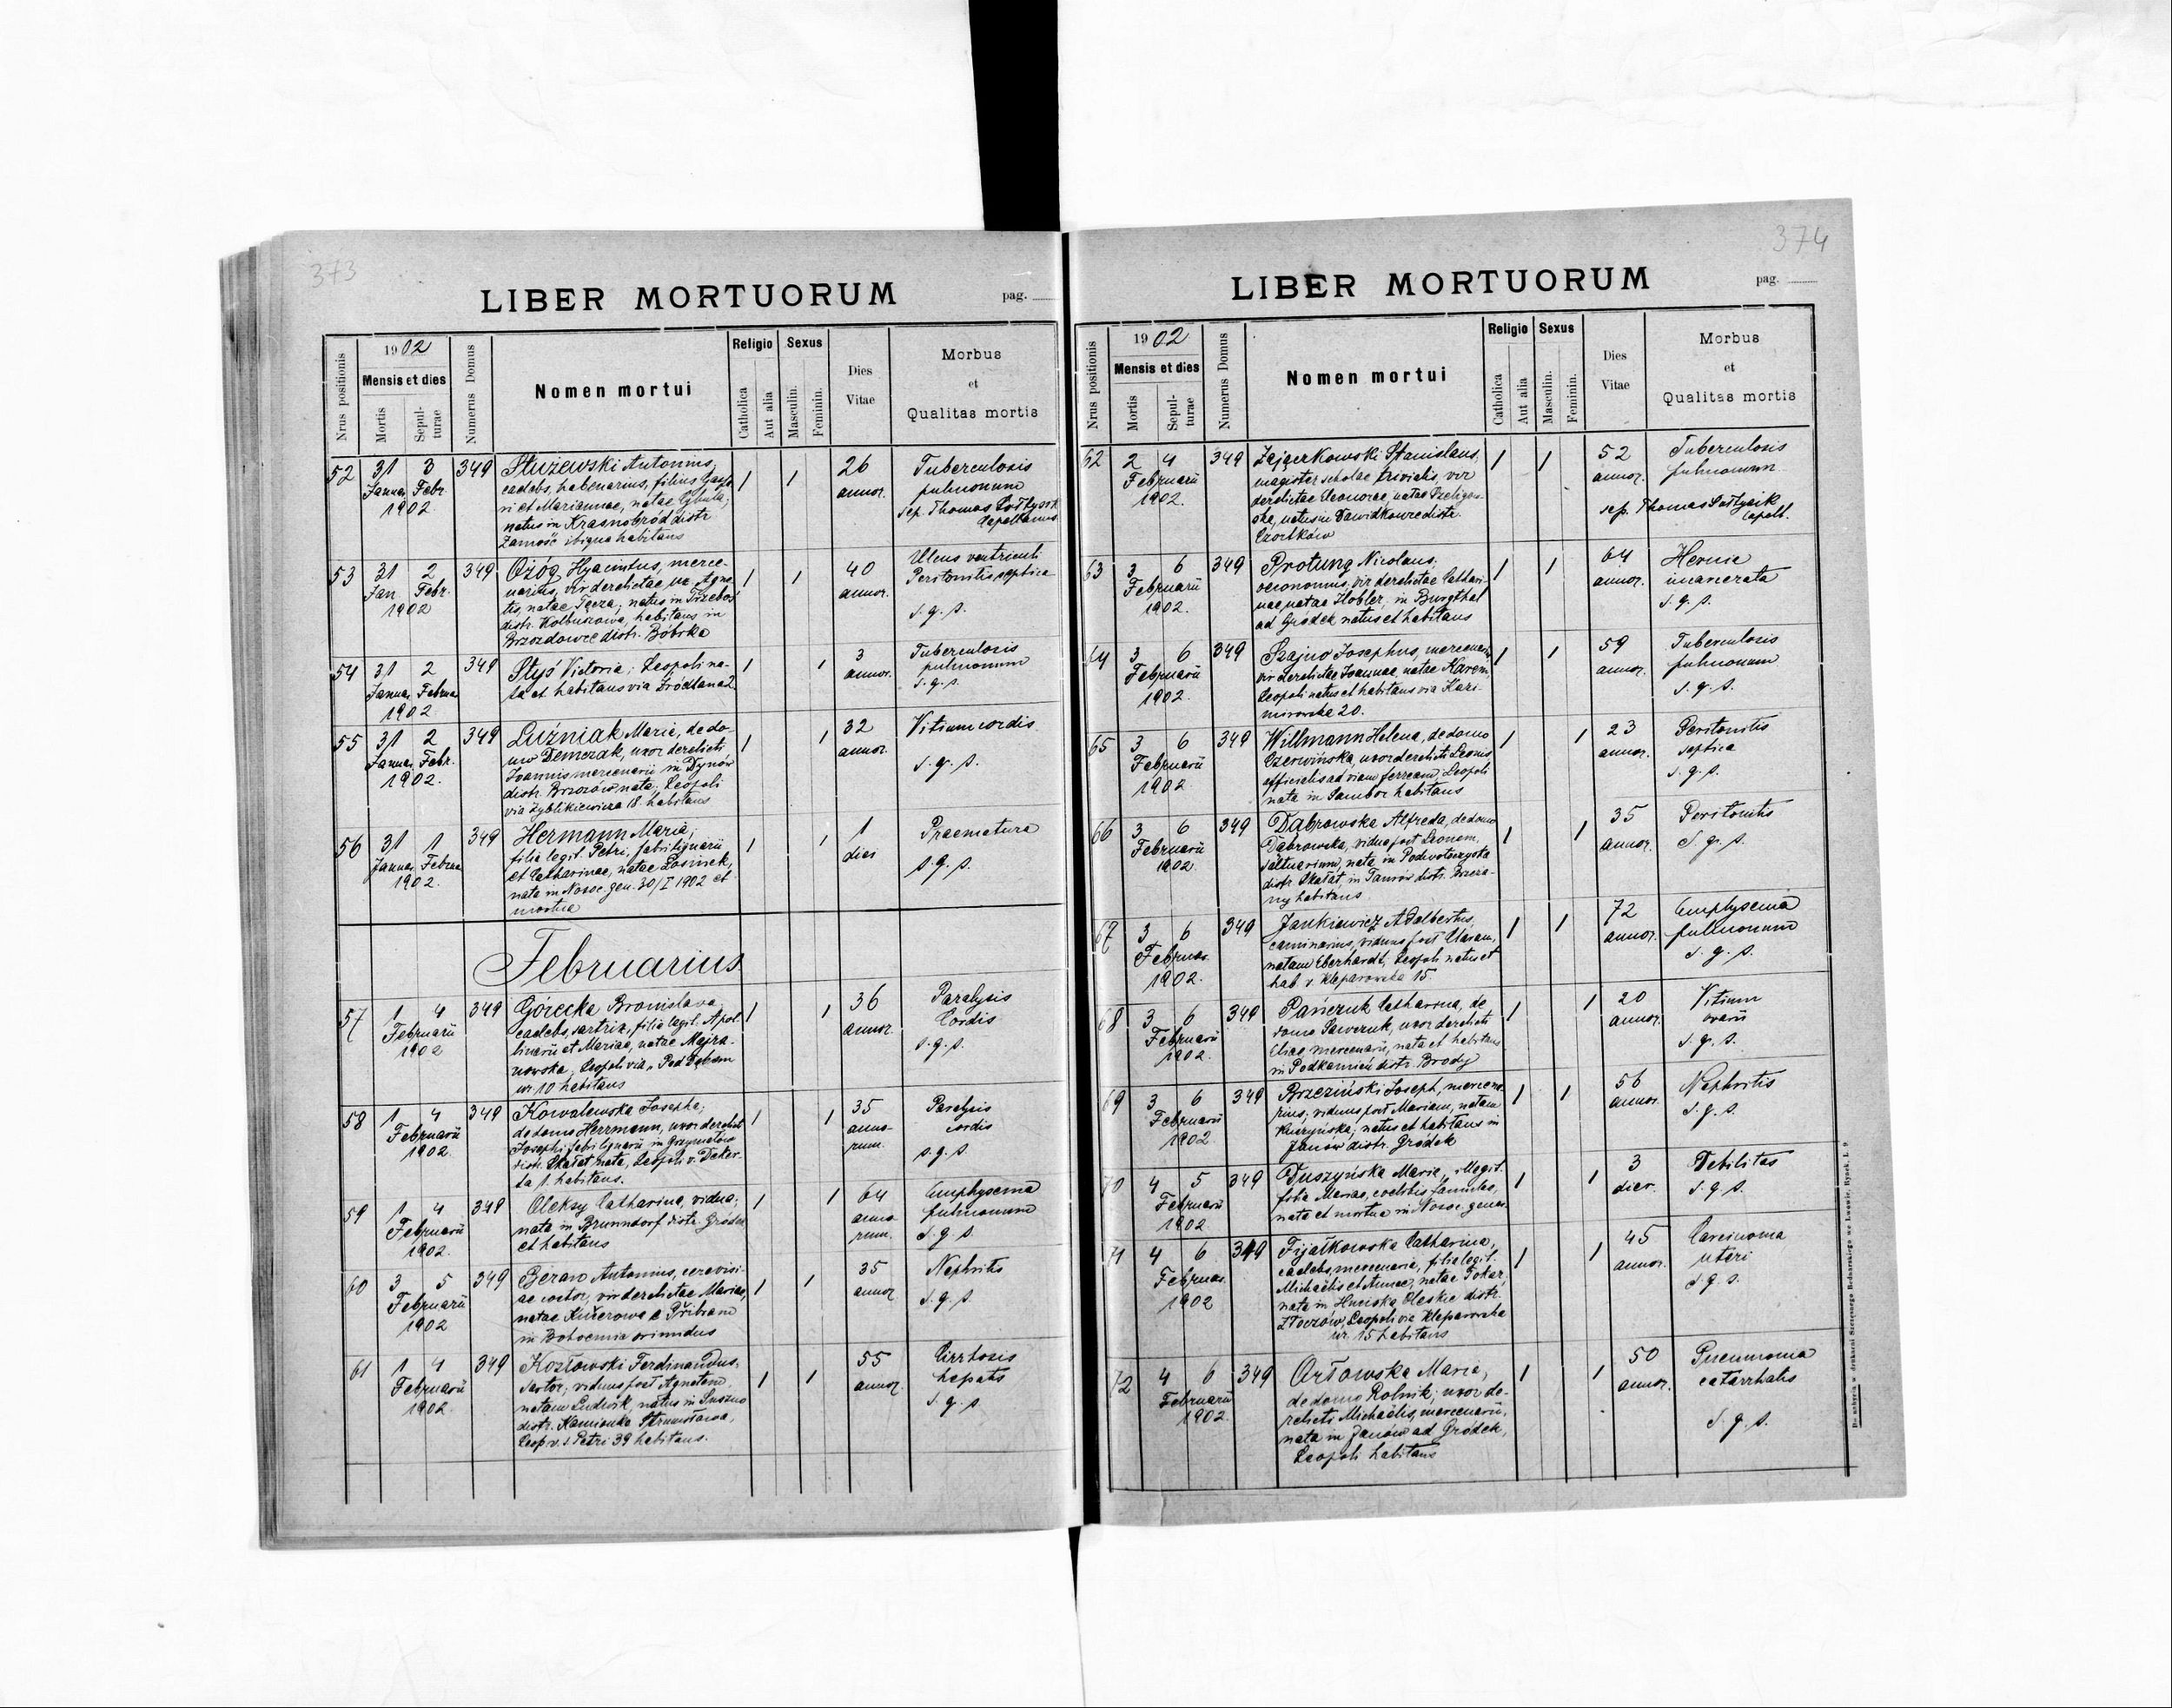 373
LIBER MORTUORUM
pag.
Nrus positionis
1902
Mensis et dies
Mortis
Sepul-
turae
Numerus Domus
Nomen mortui
Religio
Catholica
Aut alia
Sexus
Masculin.
Feminin.
Dies
Vitae
Morbus
et
Qualitas mortis
52 31 3 349 Służewski Antonius, 1 1 26 Tuberculosis
Januar. Febr. caelebs, habenarius, filius annor. pulmonum
1902 ni et Mariannae, natae sep. Thomas Sołtysik
natus in Krasnobród distr. Capellanus
Zamość ibique habitans
53 31 2 349 Ożóg Hyacintus, merce- 1 1 40 Ulcus ventriculi
Jan. Febr. narius, vir derelictae Agne- annor. Peritonitis septica
1902 tis, natae Tęcza, natus in Trzeboś s. q. s.
distr. Kolbuszowa, habitans in
Brzozdowce distr. Bóbrka
54 31 2 349 Styś Victoria, Leopoli na- 1 1 3 Tuberculosis
Januar. Februar. ta et habitans via Źródlana 2. annor. pulmonum
1902 s. q. s.
55 31 2 349 Luźniak Maria, de do- 1 1 32 Vitium cordis
Januar. Febr. mo Demczak, uxor derelicti annor.
1902. Joannis mercenarii in Dynów s. q. s.
distr. Brzozów nata, Leopoli
via Zyblikiewicza 18 habitans
56 31 1 349 Hermann Maria, 1 1 1 Praematura
Januar. Februar. filia legit. Petri, fabri lignarii diei
1902. et Catharinae, natae Łosinek, s. q. s.
nata in Nosoc. gen. 30/I 1902 et
mortua
Februarius
57 1 4 349 Górecka Bronislava, 1 1 36 Paralysis
Februarii caelebs, sartrix, filia legit. Apol- annor. Cordis
1902 linarii et Mariae, natae Majra- s. q. s.
nowska, Leopoli via „Pod Dębem
nr. 10 habitans
58 1 4 349 Kowalewska Josepha, 1 1 35 Paralysis
Februarii de domo Herrmann, uxor derelicti anno- cordis
1902. Josephi fabri lignarii in Grzymałów rum. s. q. s.
distr. Skałat nata, Leopoli v. Deker-
ta 1. habitans.
59 1 4 349 Oleksy Catharina, vidua, 1 1 64 Emphysema
Februarii nata in Brunndorf distr. Gródek anno- pulmonum
1902. et habitans rum. s. q. s
60 3 5 349 Beran Antonius, cerevisi- 1 1 35 Nephritis
Februarii ae coctor, vir derelictae Mariae, annor.
1902 natae Kučerowa e Přibram s. q. s.
in Bohoemia oriundus
61 1 4 349 Kozłowski Ferdinandus, 1 1 55 Cirrhosis
Februarii sartor, viduus post Agnetem, annor. hepatis
1902. natam Ludwik, natus in Suszno s. q. s
distr. Kamionka Strumiłowa,
Leop. v. s. Petri 39 habitans.
374
LIBER MORTUORUM
pag.
Nrus positionis
1902
Mensis et dies
Mortis
Sepul-
turae
Numerus Domus
Nomen mortui
Religio
Catholica
Aut alia
Sexus
Masculin.
Feminin.
Dies
Vitae
Morbus
et
Qualitas mortis
62 2 4 349 Zajączkowski Stanislaus, 1 1 52 Tuberculosis
Februarii magister scholae trivialis, vir annor. pulmonum
1902. derelictae Eleonorae, natae sep. Thomas Sołtysik
natus in Dawidkowce distr. Capell.
Czortków
63 3 6 349 Protung Nicolaus, 1 1 64 Hernia
Februarii oeconomus, vir derelictae Cathari- annor. incarcerata
1902. nae natae Hobler, in Burgthal s. q. s.
ad Gródek natus et habitans
64 3 6 349 Szajno Josephus, mercenarius 1 1 59 Tuberculosis
Februarii vir derelictae Joannae, natae annor. pulmonum
1902. Leopoli natus et habitans via Kazi- s. q. s.
mirowska 20.
65 3 6 349 Willmann Helena, de domo 1 1 23 Peritonitis
Februarii Czerwińska, uxor derelicti Leonis annor. septica
1902 officialis ad viam ferream, Leopoli s. q. s.
nata in Sambor habitans
66 3 6 349 Dąbrowska Alfreda, de domo 1 1 35 Peritonitis
Februarii Dąbrowska, vidua post Leonem, annor. s. q. s.
1902. saltuarium, nata in Podwołoczyska
distr. Skałat, in Taurów distr. Brzeża-
ny habitans
67 3 6 349 Jankiewicz Adalbertus, 1 1 72 Emphysema
Februar. caminarius, viduus post annor. pulmonum
1902. natam Eberhardt, Leopoli natus et s. q. s.
hab. v. Kleparowska 15.
68 3 6 349 Pańczuk Catharina, de 1 1 20 Vitium
Februarii domo Sawczuk, uxor derelicti annor. ovarii
1902. Eliae mercenarii, nata et habitans s. q. s.
in Podkamień distr. Brody
69 3 6 349 Brzeziński Joseph, mercena- 1 1 56 Nephritis
Februarii rius, viduus post Mariam, natam annor. s. q. s.
1902 Kuczyńska, natus et habitans in
Janów distr. Gródek
70 4 5 349 Duszyńska Maria, illegit. 1 1 3 Debilitas
Februarii filia Mariae, coelibis famulae, dier. s. q. s.
1902 nata et mortua in Nosoc. gener.
71 4 6 349 Fijałkowska Catharina, 1 1 45 Carcinoma
Februar. caelebs, mercenaria, filia legit. annor. uteri
1902 Michaëlis et Annae, natae Tokar, s. q. s.
nata in Huciska Oleskie distr.
Złoczów, Leopoli via Kleparowska
nr. 15 habitans
72 4 6 349 Orłowska Maria, 1 1 50 Pneumonia
Februarii de domo Rolnik, uxor de- annor. catarrhalis
1902. relicti Michaëlis, mercenarii,
nata in Janów ad Gródek, s. q. s.
Leopoli habitans